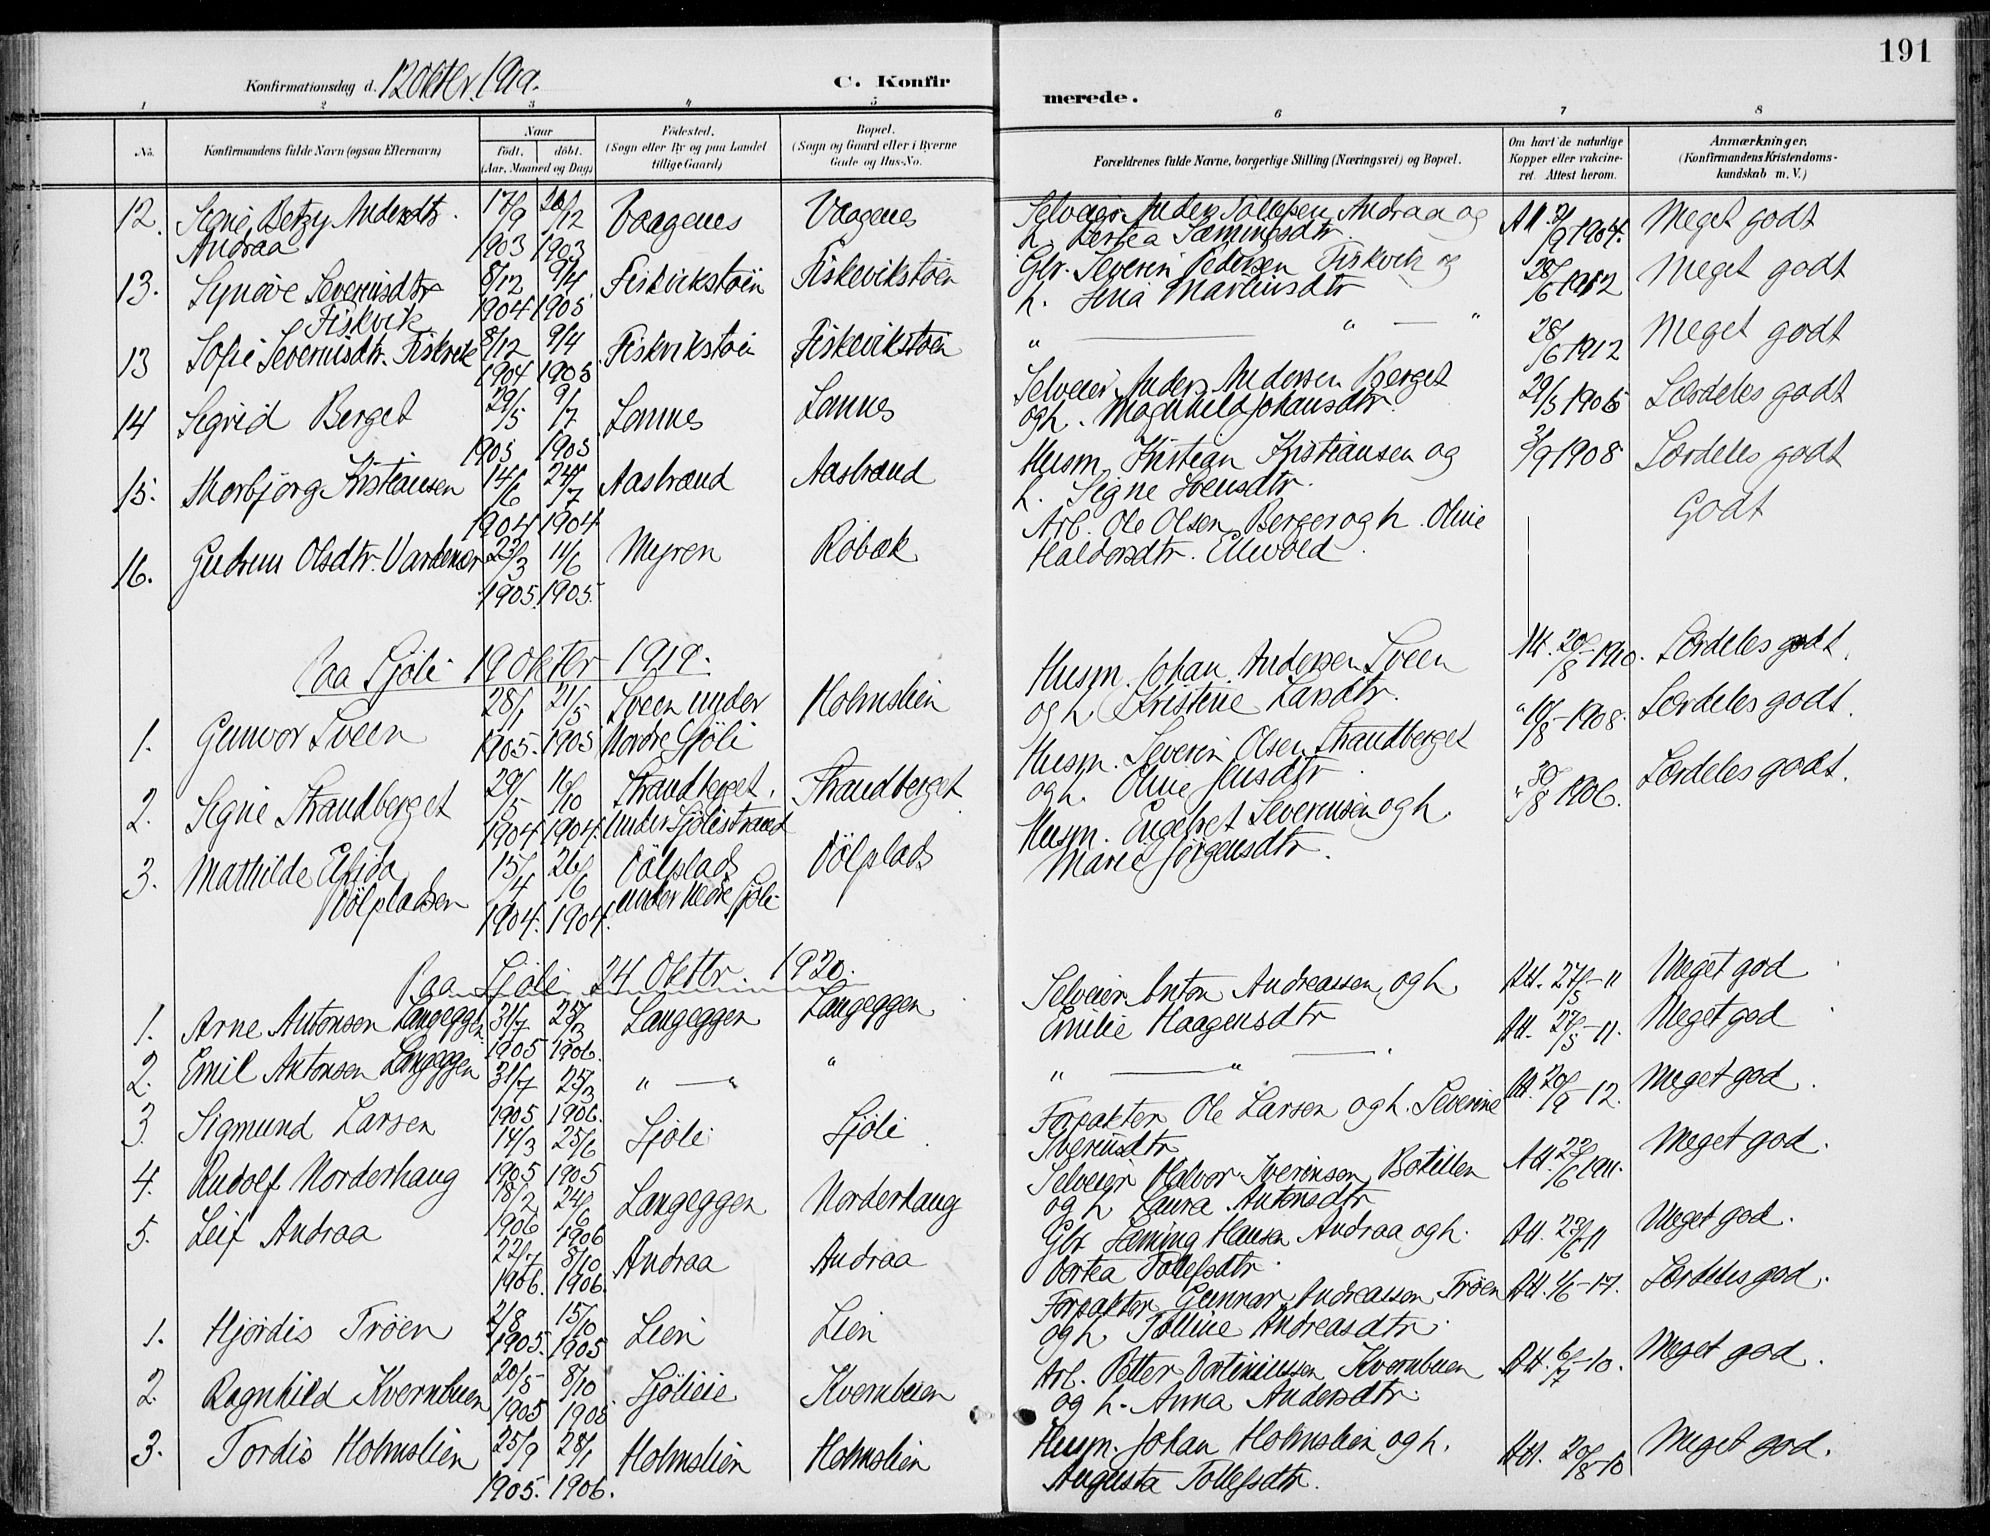 191
Konfirmationsdag d. 12 Oktbr. 1919.
C. Konfir
merede.
1 2 3 4 5 6 7 8
No.
Konfirmandens fulde Navn (ogsaa Efternavn)
Naar
födt. döbt.
(Aar, Maaned og Dag)
Födested.
(Sogn eller By og paa Landet
tillige Gaard)
Bopæl.
(Sogn og Gaard eller i Byerne
Gade og Hus-No.
Forældrenes fulde Navne, borgerlige Stilling (Næringsvei) og Bopæl.
Om havt de naturlige
Kopper eller vakcine-
ret. Attest herom.
Anmærkninger.
(Konfirmandens Kristendoms-
kundskab m. V.)
12. Signe Betzy Andersdtr. 17/9 26/12 Vaagenes Vaagenes Selveier Anders Tollefsen Andraa og Att 9 1904. Meget godt
Andraa 1903 1903 h. Dortea Sæmingsdtr.
13. Synöve Severinsdtr 8/12 9/4 Fiskvikstöen Fiskevikstöen Gbr. Severin Pedersen Fiskvik og 28/6 1912 Meget godt
Fiskvik 1904 1905 h. Jenia Martinsdtr
13 Sofie Severinsdtr. Fiskvik 8/12 9/4 Fiskvikstöen Fiskevikstöen " — " — " 28/6 1912 Meget godt
1904 1905
14 Sigrid Berget 29/5 9/7 Lannes Lannes Selveier Anders Andersen Berget 29/5 1906 Særdeles godt
1905 1905 og h. Magnhild Johansdtr.
15. Thorbjörg Kristiansen 14/6 24/7 Aastrand Aastrand Husm. Kristian Kristiansen og 3/9 1908 Særdeles godt
1904 1904 h. Signe Svensdtr.
16. Gudrun Olsdtr. Vardenær 23/3 11/6 Myren Röbæk Arb. Ole Olsen Berger og h. Oline Godt
1905. 1905. Haldorsdtr. Ellevold
Paa Sjöli 19 Oktbr 1919.
1. Gunvor Sveen 28/1 21/5 Sveen under Holmslien Husm. Johan Andersen Sveen Att. 20/8 - 1910. Særdeles godt.
1905. 1905 Nordre Sjöli og h. Kristine Larsdtr.
2. Signe Strandberget 29/5 16/10 Strandberget. Strandberget Husm. Severin Olsen Strandberget " 10/8 - 1908. Særdeles godt.
1904 1904. under Sjölistrand og h. Oline Jensdtr
3. Mathilde Elfida 15/4 26/6 Völplads Völplads Husm. Engebret Severinsen og h. " 30/8 1906. Særdeles godt.
Völpladsen 1904. 1904. under Nedre Sjöli Marie Jörgensdtr.
Paa Sjöli 24 Oktbr. 1920.
1. Arne Antonsen Langeggen 31/7 25/3 Langeggen Langeggen Selveier Anton Andreassen og h. Att. 27/5 - 11 Meget god
1905 1906. Emilie Haagensdtr
2. Emil Antonsen Langeggen 31/7 25/3 " — " " " — " — " Att. 27/5 - 11. Meget god
1905 1906.
3. Sigmund Larsen 14/3 25/6 Sjöli Sjöli Forpakter Ole Larsen og h. Severine Att. 20/9 - 12. Meget god.
1905 1905 Iverinsdtr
4. Rudolf Norderhaug 18/2 24/6 Langeggen Norderhaug Selveier Halvor Iverinsen Botillen Att. 22/6 1911. Meget god.
1906 1906 og h Laura Antonsdtr
5. Leif Andraa 22/7 8/10 Andraa Andraa Gbr. Sæming Hansen Andraa og h. Att. 23/6 11 Meget god.
1906. 1906. Dortea Tollefsdtr.
1. Hjördis Tröen 2/8 15/10 Lien Lien Forpakter Gunnar Andreassen Tröen Att. 4/6 - 17. Særdeles god.
1905. 1905 og h Tolline Andreasdtr.
2. Ragnhild Kvernbuen 20/5 8/10 Sjölieie Kvernbuen Arb. Petter Kvernbuen Att. 6/7 - 10. Meget god.
1905 1905 og h. Anna Andersdtr.
3. Tordis Holmslien 25/9 28/1 Holmslien Holmslien Husm. Johan Holmslien og h. Att. 20/8 - 10 Meget god.
1905. 1906. Augusta Tollefsdtr.